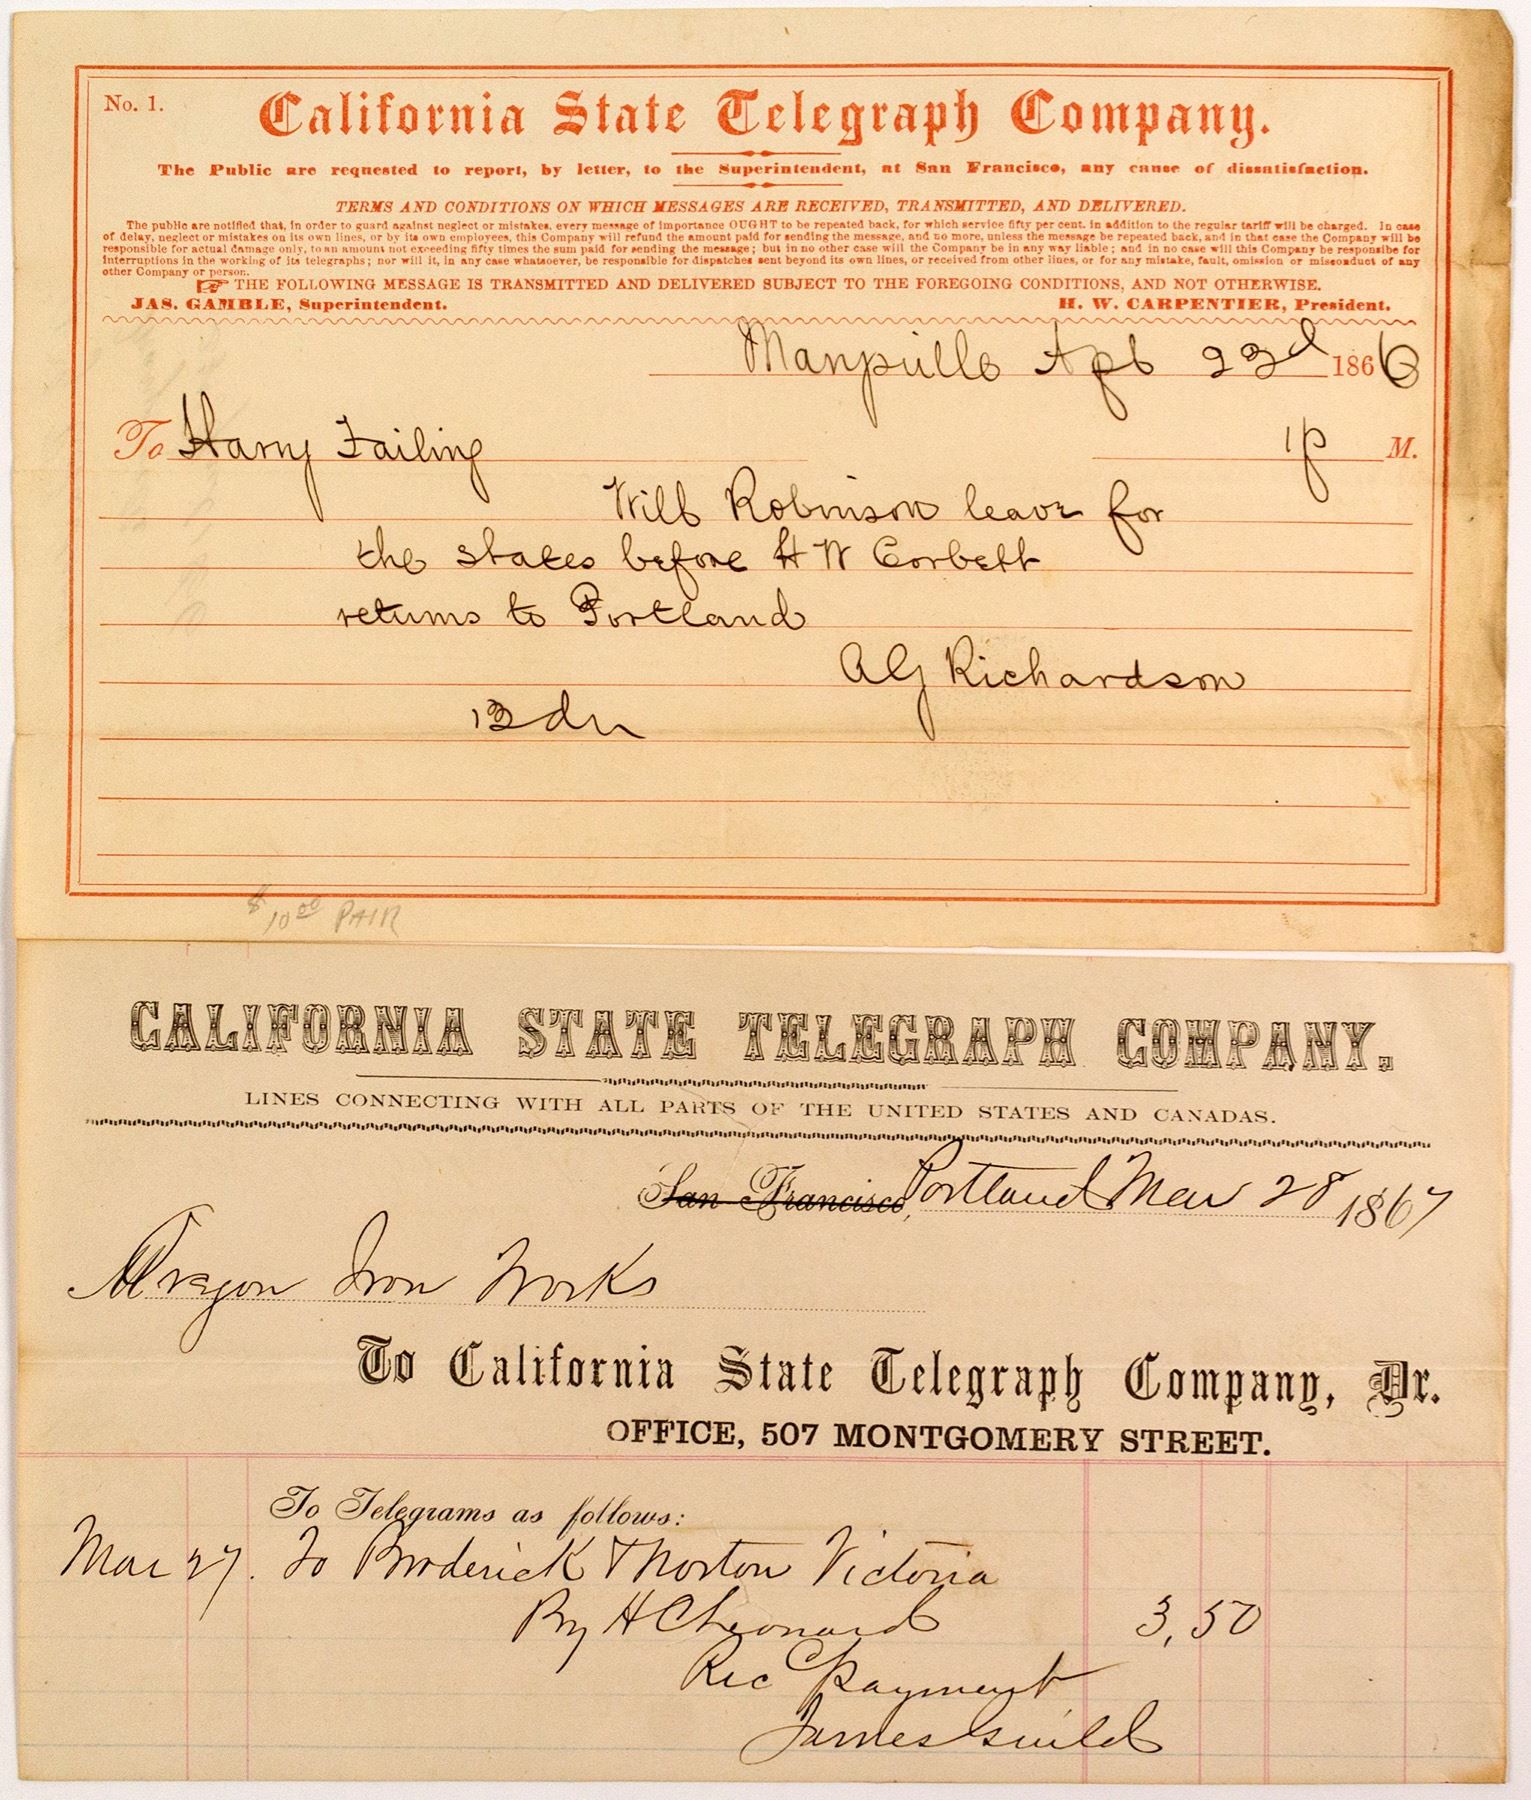 No. 1.
California State Telegraph Company.
The Public are requested to report, by letter, to the Superintendent, at San Francisco, any cause of dissatisfaction.
TERMS AND CONDITIONS ON WHICH MESSAGES ARE RECEIVED, TRANSMITTED, AND DELIVERED.
The public are notified that, in order to guard against neglect or mistakes, every message of importance OUGHT to be repeated back, for which service fifty per cent. in addition to the regular tariff will be charged. In case
of delay, neglect or mistakes on its own lines, or by its own employees, this Company will refund the amount paid for sending the message, and no more, unless the message be repeated back, and in that case the Company will be
responsible for actual damage only, to an amount not exceeding fifty times the sum paid for sending the message; but in no other case will the Company be in any way liable; and in no case will this Company be responsibe for
interruptions in the working of its telegraphs; nor will it, in any case whatsoever, be responsible for dispatches sent beyond its own lines, or received from other lines, or for any mistake, fault, omission or misconduct of any
other Company or person.
☞ THE FOLLOWING MESSAGE IS TRANSMITTED AND DELIVERED SUBJECT TO THE FOREGOING CONDITIONS, AND NOT OTHERWISE.
JAS. GAMBLE, Superintendent. H. W. CARPENTIER, President.
23d 1866
To Harry Failing 1 p M.
Will Robinson leave for
the states before H W Corbett
returns to Portland
A G Richardson
$10.00 PAIR
CALIFORNIA STATE TELEGRAPH COMPANY.
LINES CONNECTING WITH ALL PARTS OF THE UNITED STATES AND CANADAS.
San Francisco, Portland Mar 28 1867
Iron Works
To California State Telegraph Company, Dr.
OFFICE, 507 MONTGOMERY STREET.
To Telegrams as follows:
Mar 27. To Broderick & Norton Victoria
By H C Leonard 3,50
Rec Payment
James Guild